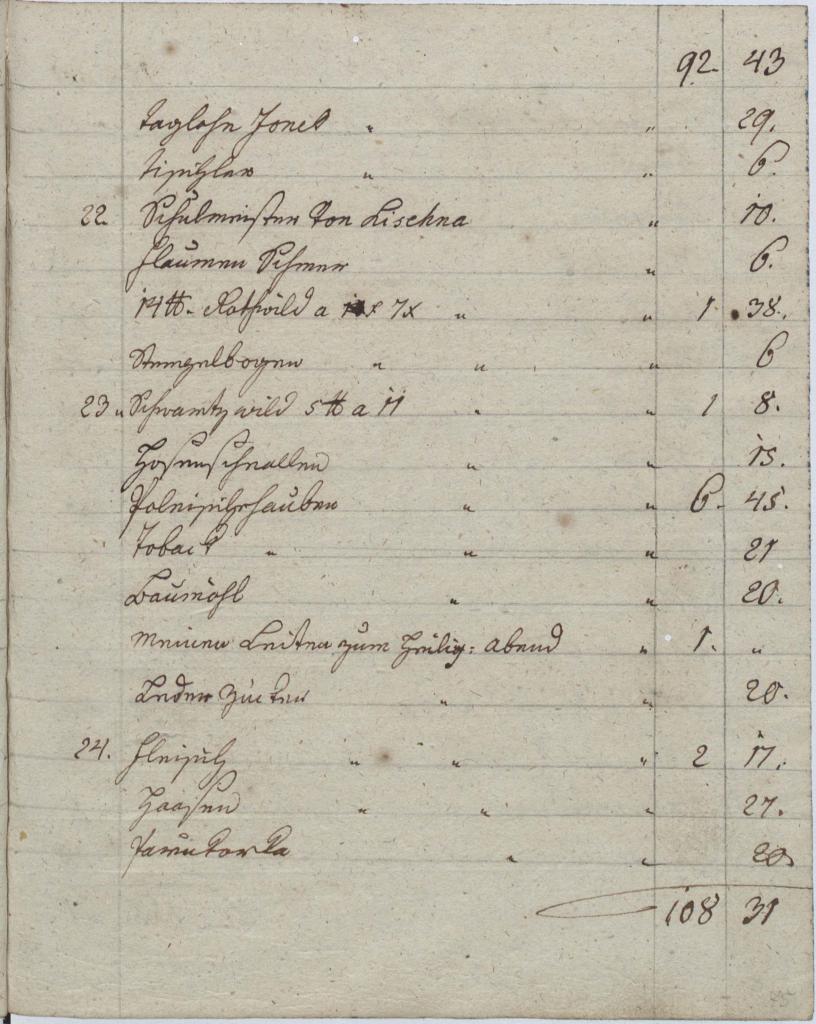 92. 43
Taglohn Jonel " " 29.
Tischler " " 6.
22. Schulmeister von Lischna " 10.
Flaumen Schmer " 6.
14 ℔. Rothwild a 7x " " 1 38.
Stempelbogen " " " 6
23 " Schwartzwild 5 ℔ a 11 " " 1 8.
Hosenschnallen " " 15.
Polnischehauben " " 6. 45.
Toback " " " 21
Baumöhl " " 20.
meinen Leiten zum Heilig: abend " 1. "
Leder Zucker " " 20.
24. Fleisch " " " 2 17.
Haasen " " " 27.
" " 20
108 31